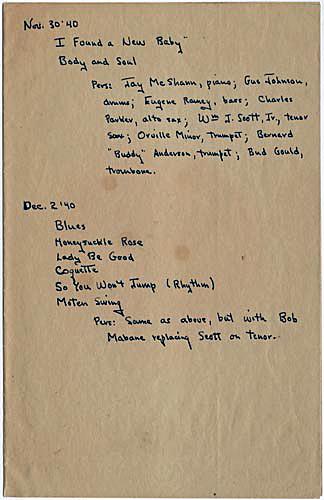 Nov. 30 '40
I Found a New Baby"
Body and Soul
Pers: Jay McShann, piano; Gus Johnson,
drums; Eugene Ramey, bass; Charles
Parker, alto sax; Wm J. Scott, Jr., tenor
sax; Orville Minor, trumpet; Bernard
"Buddy" Anderson, trumpet; Bud Gould,
trombone.
Dec. 2 '40
Blues
Honeysuckle Rose
Lady Be Good
Coquette
So You Won't Jump (Rhythm)
Moten Swing
Pers: Same as above, but with Bob
Mabane replacing Scott on tenor.